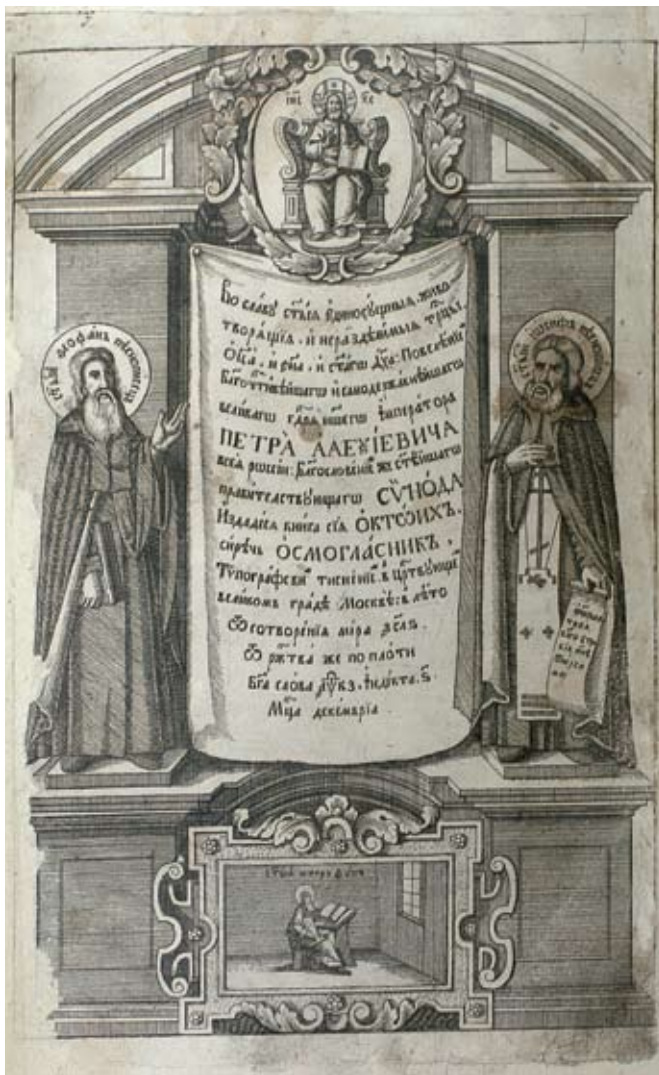 І҃ИС Х҃С
Во славу ст҃ыѧ единосущныѧ, живо-
творѧщїѧ, и нераздѣлимыѧ трⷪ҇цы,
Ѻц҃а, и сн҃а, и ст҃агѡ дх҃а: Повелѣнїемъ
Благочтивѣйшагѡ и самодержавнѣйшагѡ
великагѡ гдⷭ҇рѧ нашегѡ імператора
ПЕТРА̀ АЛЕѮІЕВИЧА
всеѧ рѡссїи: Благословенїемъ же ст҃ѣйшагѡ
правителствующагѡ СѴНО́ДА
Издадесѧ книга сїѧ ОКТѠ́ИХЪ.
сирѣчь ѺСМОГЛА́СНИКЪ,
Тѷпографскимъ тиснѣнїемъ. в црⷭ҇твующемъ
великомъ градѣ Москвѣ: в лѣто
Ѿ сотворенїѧ мїра ҂зсл҃ѕ.
Ѿ рж҃тва же по плоти
Бг҃а слова ҂аѱк҃з, індїкта ѕ҃.
Мц҃а декемврїа.
ст҃ый ѳеофанъ пѣснописецъ
ст҃ый іѡсифъ пѣснописецъ